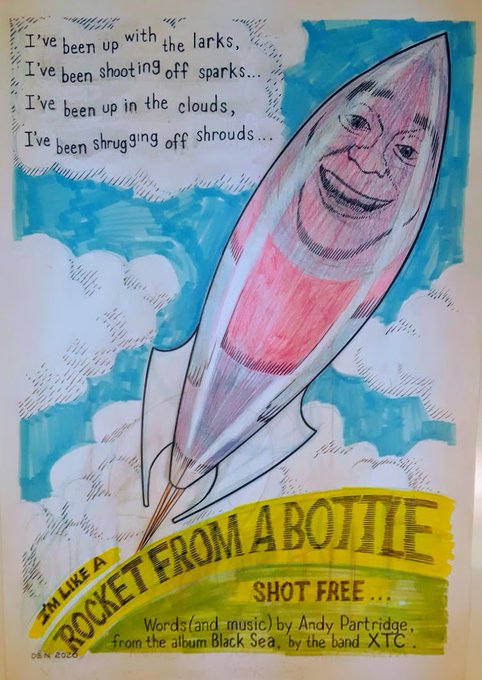 I've been up with the larks,
I've been shooting off sparks...
I've been up in the clouds,
I've been shrugging off shrouds...
I'M LIKE A
ROCKET FROM A BOTTLE
SHOT FREE...
Words (and music) by Andy Partridge,
from the album Black Sea, by the band XTC.
DEN 2020